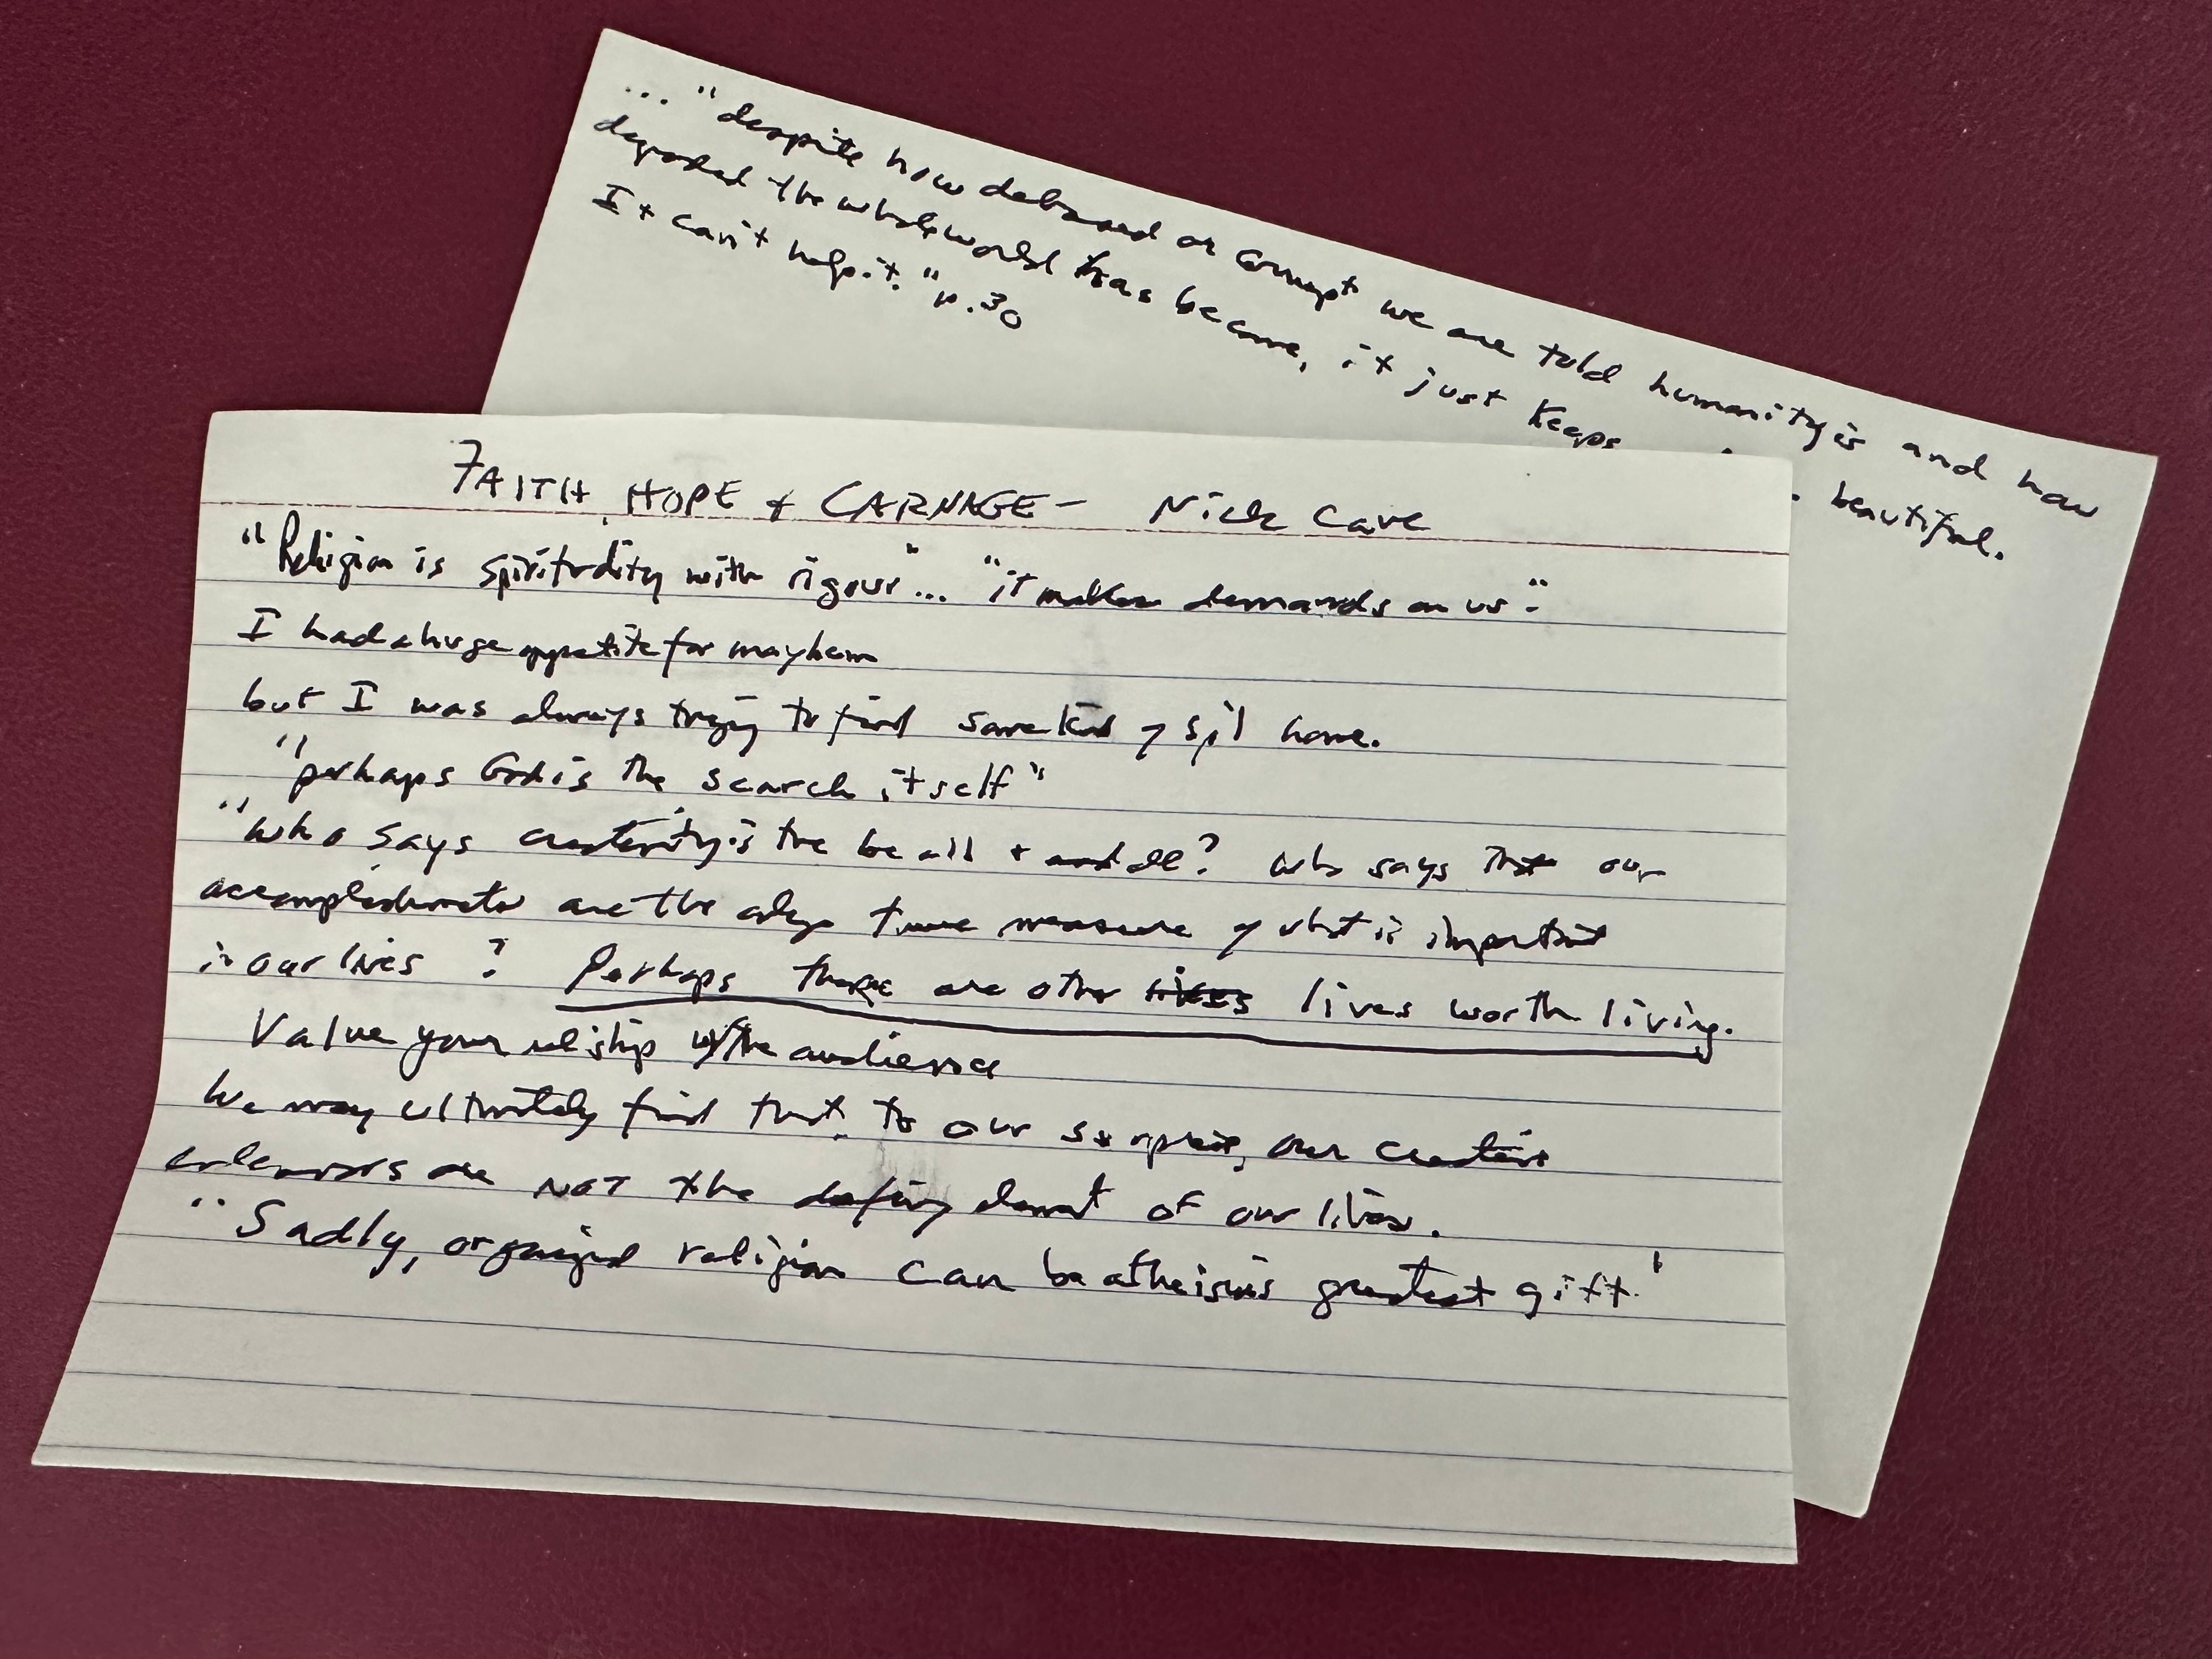 ... "despite how debased or corrupt we are told humanity is and how
degraded the whole world has become, it just keeps beautiful.
It can't help it." p.30
FAITH, HOPE + CARNAGE - Nick Cave
"Religion is spirituality with rigour"... "it makes demands on us."
I had a huge appetite for mayhem
but I was always trying to find some kind of sp'l home.
"perhaps God is the search itself"
"who says creativity is the be all + end all? Who says that our
accomplishments are the only true measure of what is important
in our lives? Perhaps there are other lives worth living.
Value your rel'ship w/the audience
We may ultimately find that, to our surprise, our creative
endeavors are NOT the defining element of our lives.
"Sadly, organized religion can be atheism's greatest gift.'